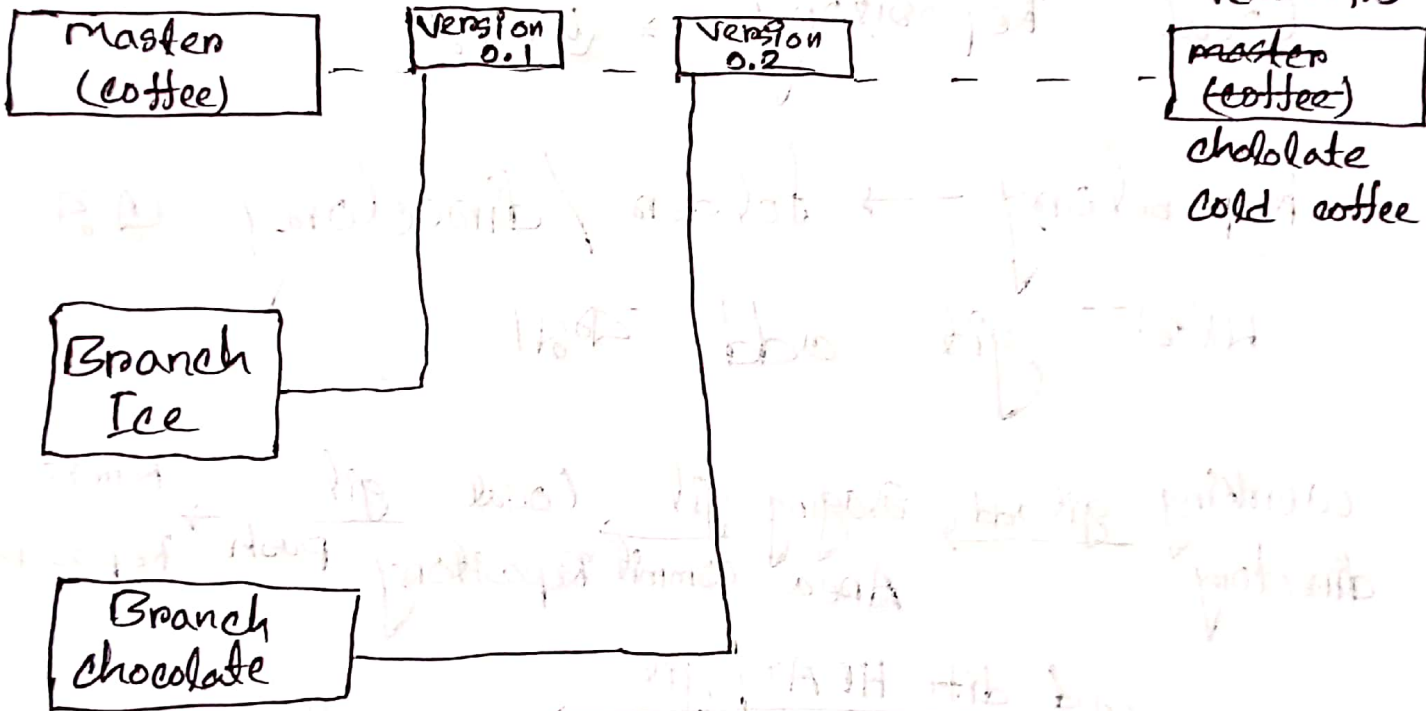 Master
(coffee)
Version
0.1
Version
0.2
master
(coffee)
chololate
cold coffee
Branch
Ice
Branch
chocolate